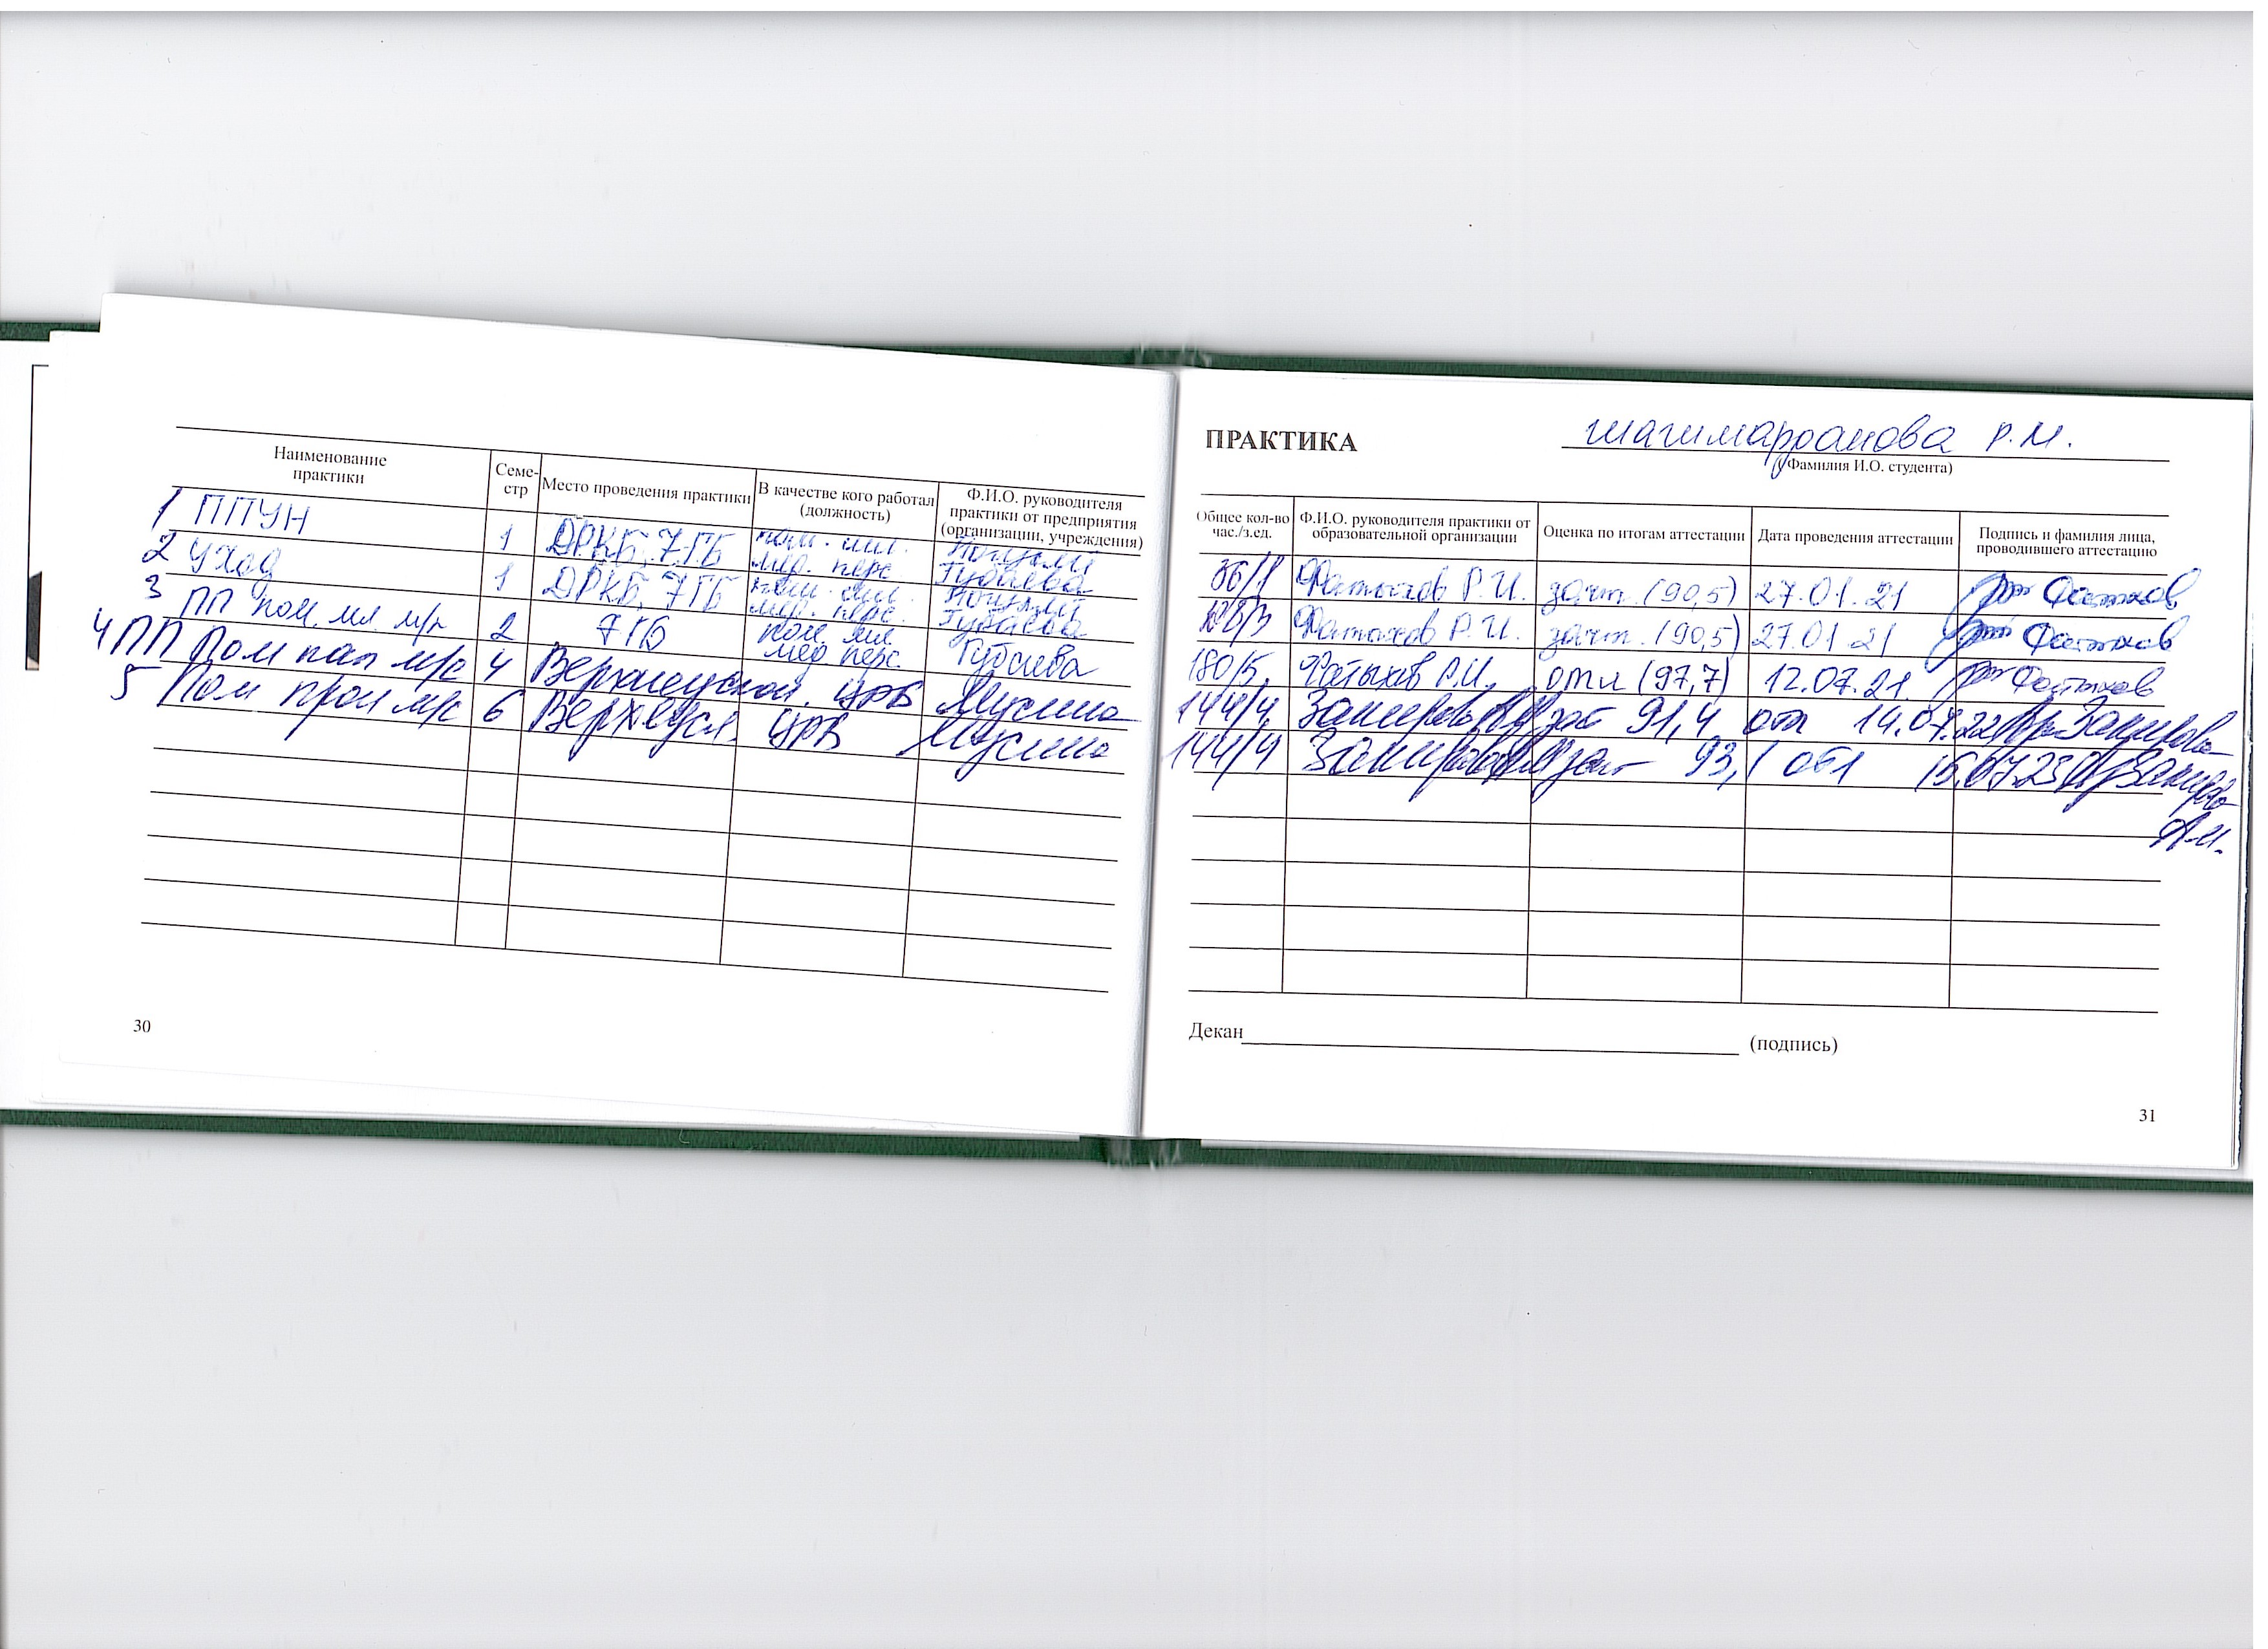 Наименование практики
Семе-стр
Место проведения практики
В качестве кого работал (должность)
Ф.И.О. руководителя практики от предприятия (организации, учреждения)
1 ППУН 1 ДРКБ, 7 ГБ пом. мл. мед. перс. Губаева
2 Уход 1 ДРКБ, 7 ГБ пом. мл. мед. перс. Губаева
3 ПП пом. мл. м/п 2 7 ГБ пом. мл. мед перс. Губаева
4 ПП Пом пал м/с 4 ЦРБ Мусина
5 Пом проц м/с 6 Верхнеусл. ЦРБ Мусина
30
ПРАКТИКА Шагимарданова Р.М.
(Фамилия И.О. студента)
Общее кол-во час./з.ед.
Ф.И.О. руководителя практики от образовательной организации
Оценка по итогам аттестации
Дата проведения аттестации
Подпись и фамилия лица, проводившего аттестацию
36/1 Фатыхов Р.И. зачт. (90,5) 27.01.21 Фатыхов
108/3 Фатыхов Р.И. зачт. (90,5) 27.01.21 Фатыхов
180/5 Фатыхов Р.И. отл (97,7) 12.07.21 Фатыхов
144/4 Закирова 91,4 отл 14.07.22 Закирова
144/4 Закирова 93,1 15.07.23 Закирова
А.И.
Декан (подпись)
31